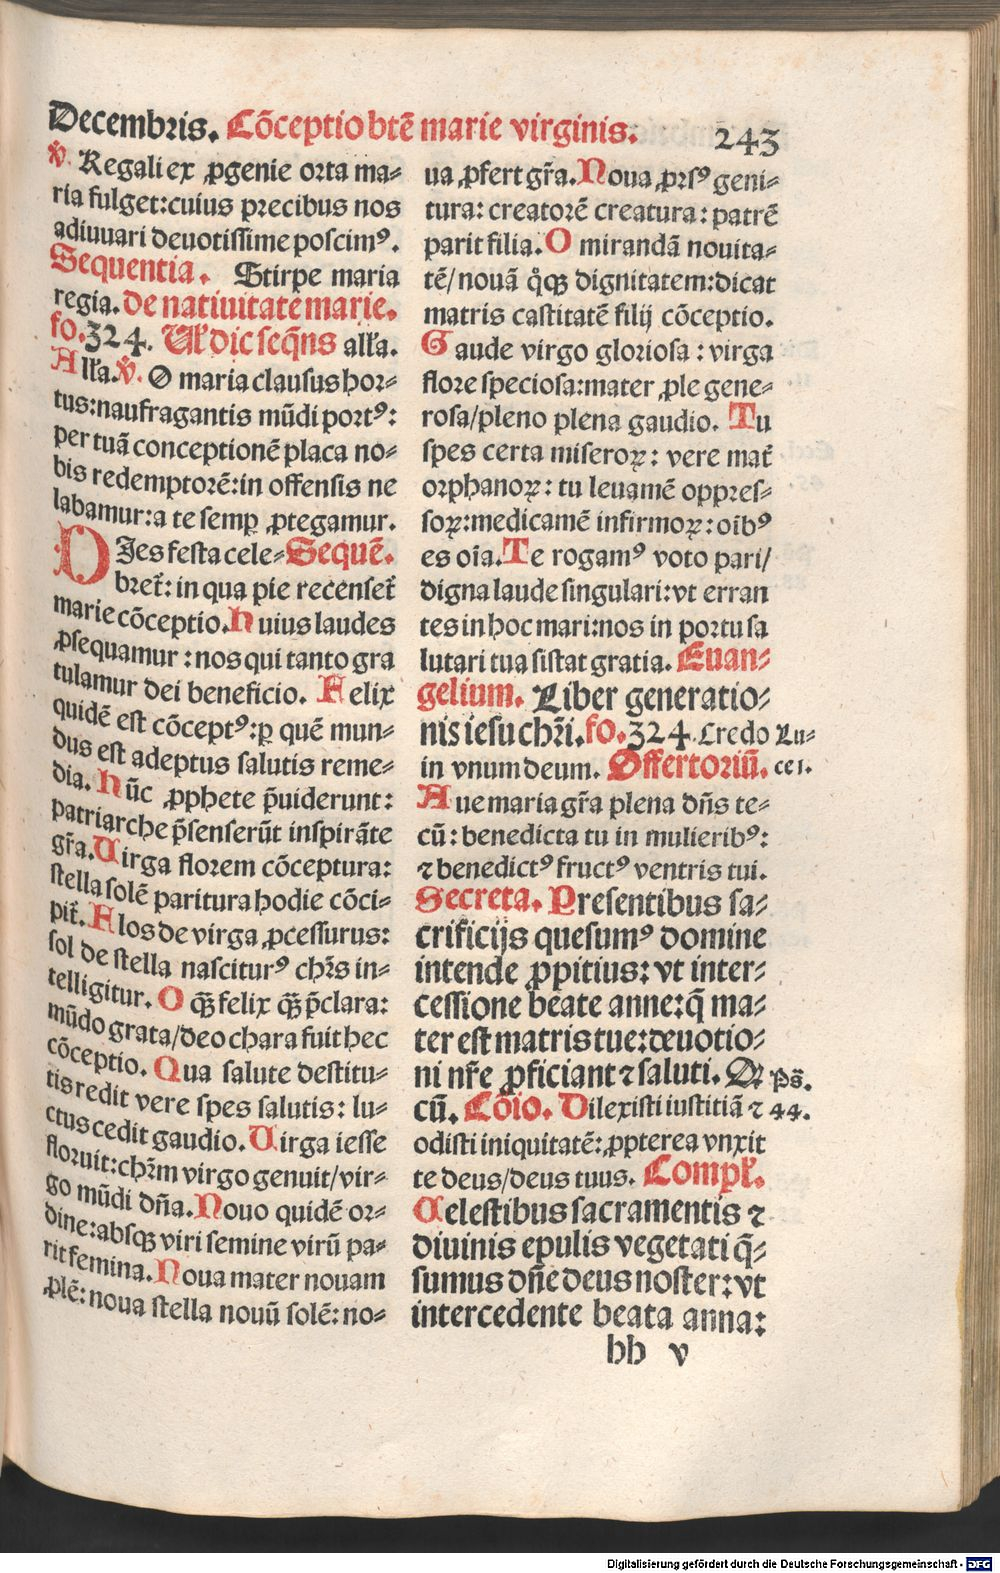 Decembris. Cõceptio btẽ marie virginis. 243
℣. Regali ex ꝓgenie orta ma⸗
ria fulget:cuius precibus nos
adiuuari deuotissime poscimꝰ.
Sequentia. Stirpe maria
regia. De natiuitate marie.
fo.324. Ul' dic seq̃ns all'a.
All'a.℣. O maria clausus hor⸗
tus:naufragantis mũdi portꝰ:
per tuã conceptionẽ placa no⸗
bis redemptorẽ:in offensis ne
labamur:a te semꝑ ꝓtegamur.
DIes festa cele⸗ Sequẽ.
bret̃: in qua pie recenset̃
marie cõceptio. Huius laudes
ꝓsequamur : nos qui tanto gra
tulamur dei beneficio. Felix
quidẽ est cõceptꝰ:ꝑ quẽ mun⸗
dus est adeptus salutis reme⸗
dia. Hũc ꝓphete p̃uiderunt:
patriarche p̃senserũt inspirãte
gr̃a. Uirga florem cõceptura:
stella solẽ paritura hodie cõci⸗
pit̃. Flos de virga ꝓcessurus:
sol de stella nasciturꝰ chr̃s in⸗
telligitur. O q̃ꝫ felix q̃ꝫ p̃clara:
mũdo grata/deo chara fuit hec
cõceptio. Qua salute destitu⸗
tis redit vere spes salutis: lu⸗
ctus cedit gaudio. Uirga iesse
floruit:chr̃m virgo genuit/vir⸗
go mũdi dña. Nouo quidẽ or⸗
dine:absqꝫ viri semine virũ pa⸗
rit femina. Noua mater nouam
ꝓlẽ: noua stella nouũ solẽ: no⸗
ua ꝓfert gr̃a. Noua ꝓrsꝰ geni⸗
tura: creatorẽ creatura: patrẽ
parit filia. O mirandã nouita⸗
tẽ/nouã q̊qꝫ dignitatem:dicat
matris castitatẽ filij cõceptio.
Gaude virgo gloriosa : virga
flore speciosa:mater ꝓle gene⸗
rosa/pleno plena gaudio. Tu
spes certa miseroꝝ: vere mat̃
orphanoꝝ: tu leuamẽ oppres⸗
soꝝ:medicamẽ infirmoꝝ: oĩbꝰ
es oĩa. Te rogamꝰ voto pari/
digna laude singulari:vt erran
tes in hoc mari:nos in portu sa
lutari tua sistat gratia. Euan⸗
gelium. Liber generatio⸗
nis iesu chr̃i. fo.324. Credo Lu⸗
in vnum deum. Offertoriũ. ce 1.
Aue maria gr̃a plena dñs te⸗
cũ: benedicta tu in mulieribꝰ:
⁊ benedictꝰ fructꝰ ventris tui.
Secreta. Presentibus sa⸗
crificijs quesumꝰ domine
intende ꝓpitius: vt inter⸗
cessione beate anne:q̃ ma⸗
ter est matris tue:deuotio⸗
ni nr̃e ꝓficiant ⁊ saluti. Q Ps̃.
cũ. Cõio. Dilexisti iustitiã ⁊ 44.
odisti iniquitatẽ:ꝓpterea vnxit
te deus/deus tuus. Compl̃.
Celestibus sacramentis ⁊
diuinis epulis vegetati q̃⸗
sumus dñe deus noster: vt
intercedente beata anna:
hh v
Digitalisierung gefördert durch die Deutsche Forschungsgemeinschaft - DFG